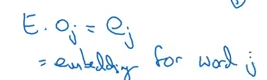 E. oj = ej
= embedding for word j